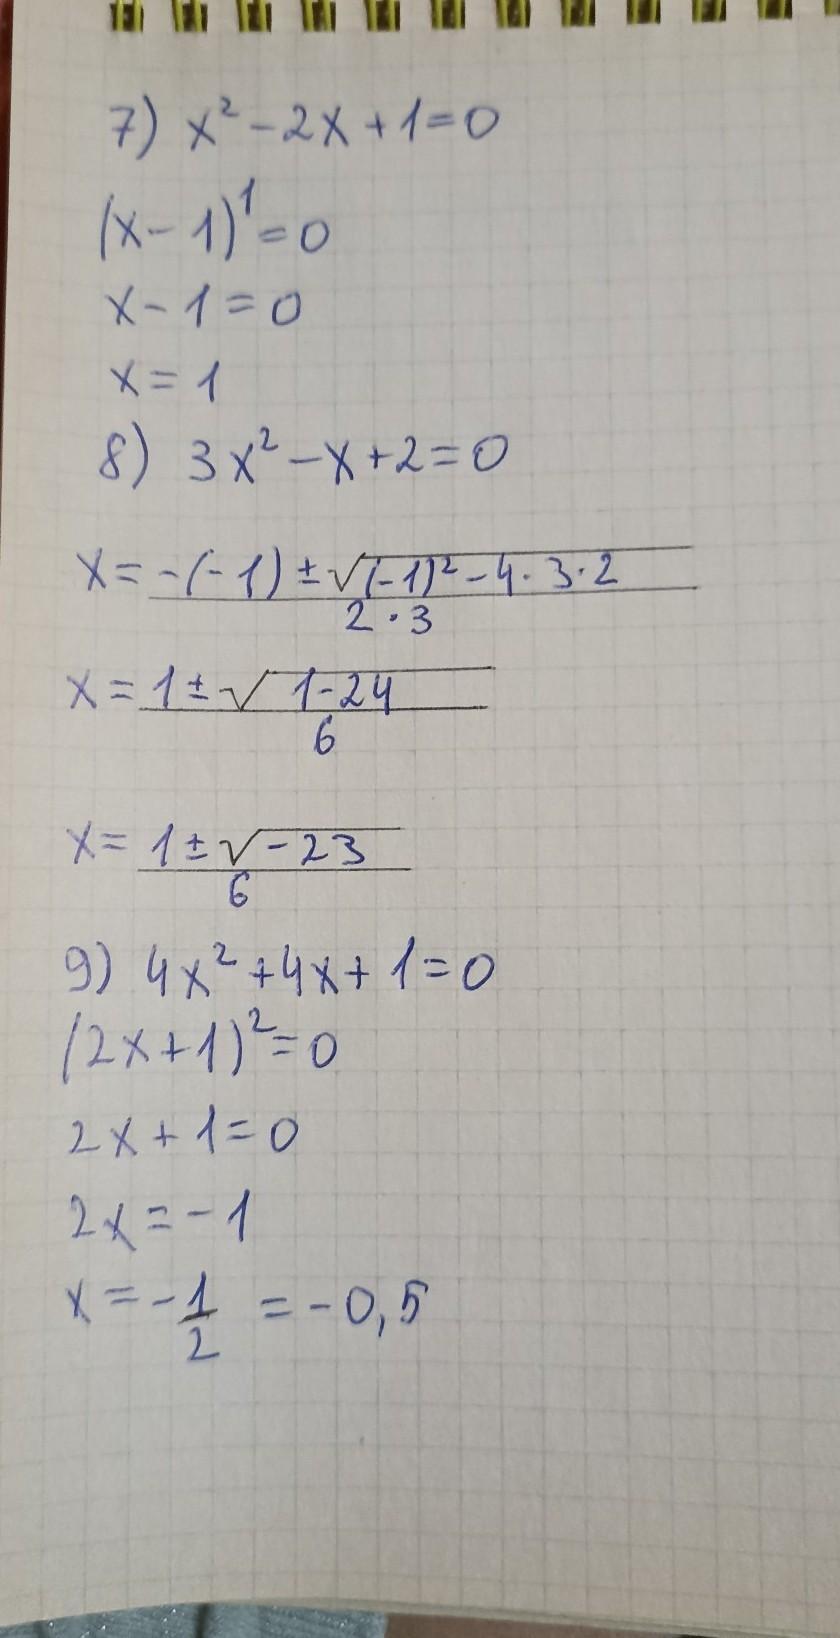 7) x² - 2x + 1 = 0
(x - 1)¹ = 0
x - 1 = 0
x = 1
8) 3x² - x + 2 = 0
x = -(-1) ± √(-1)² - 4 · 3 · 2
2 · 3
x = 1 ± √1 - 24
6
x = 1 ± √-23
6
9) 4x² + 4x + 1 = 0
(2x + 1)² = 0
2x + 1 = 0
2x = -1
x = -1/2 = -0,5